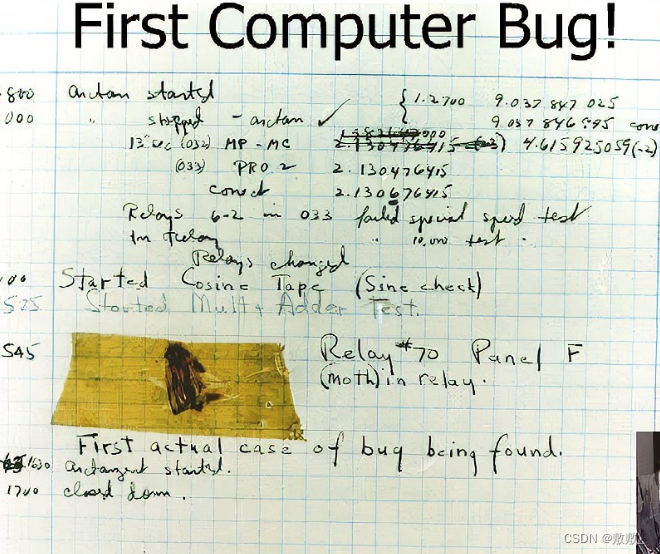 First Computer Bug!
800 arctan started { 1.2700 9.037 847 025
000 " stopped - arctan ✓ 9.037 846 995 conv
13" sec (032) MP - MC 2.130476415 (-3) 4.615925059(-2)
(033) PRO 2 2.130476415
conect 2.130676415
Relays 6-2 in 033 failed special speed test
In relay " 10,000 test .
Relays changed
00 Started Cosine Tape (Sine check)
525 Started Mult + Adder Test.
545 Relay #70 Panel F
(moth) in relay.
First actual case of bug being found.
1630 arctangent started.
1700 closed down .
CSDN @敷敷